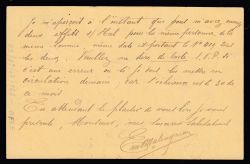 Je m'aperçois à l'instant que vous m'avez remis
deux effets s/ Hal pour la même personne, de la
même somme, même date et portant le N°
les deux. Veuillez me dire de suite, S.V.P. si
c'est une erreur ou si je dois les mettre en
circulation demain, car l'échéance est le 30 de
ce mois.
En attendant le plaisir de vous lire je vous
présente, Monsieur, mes sincères salutations